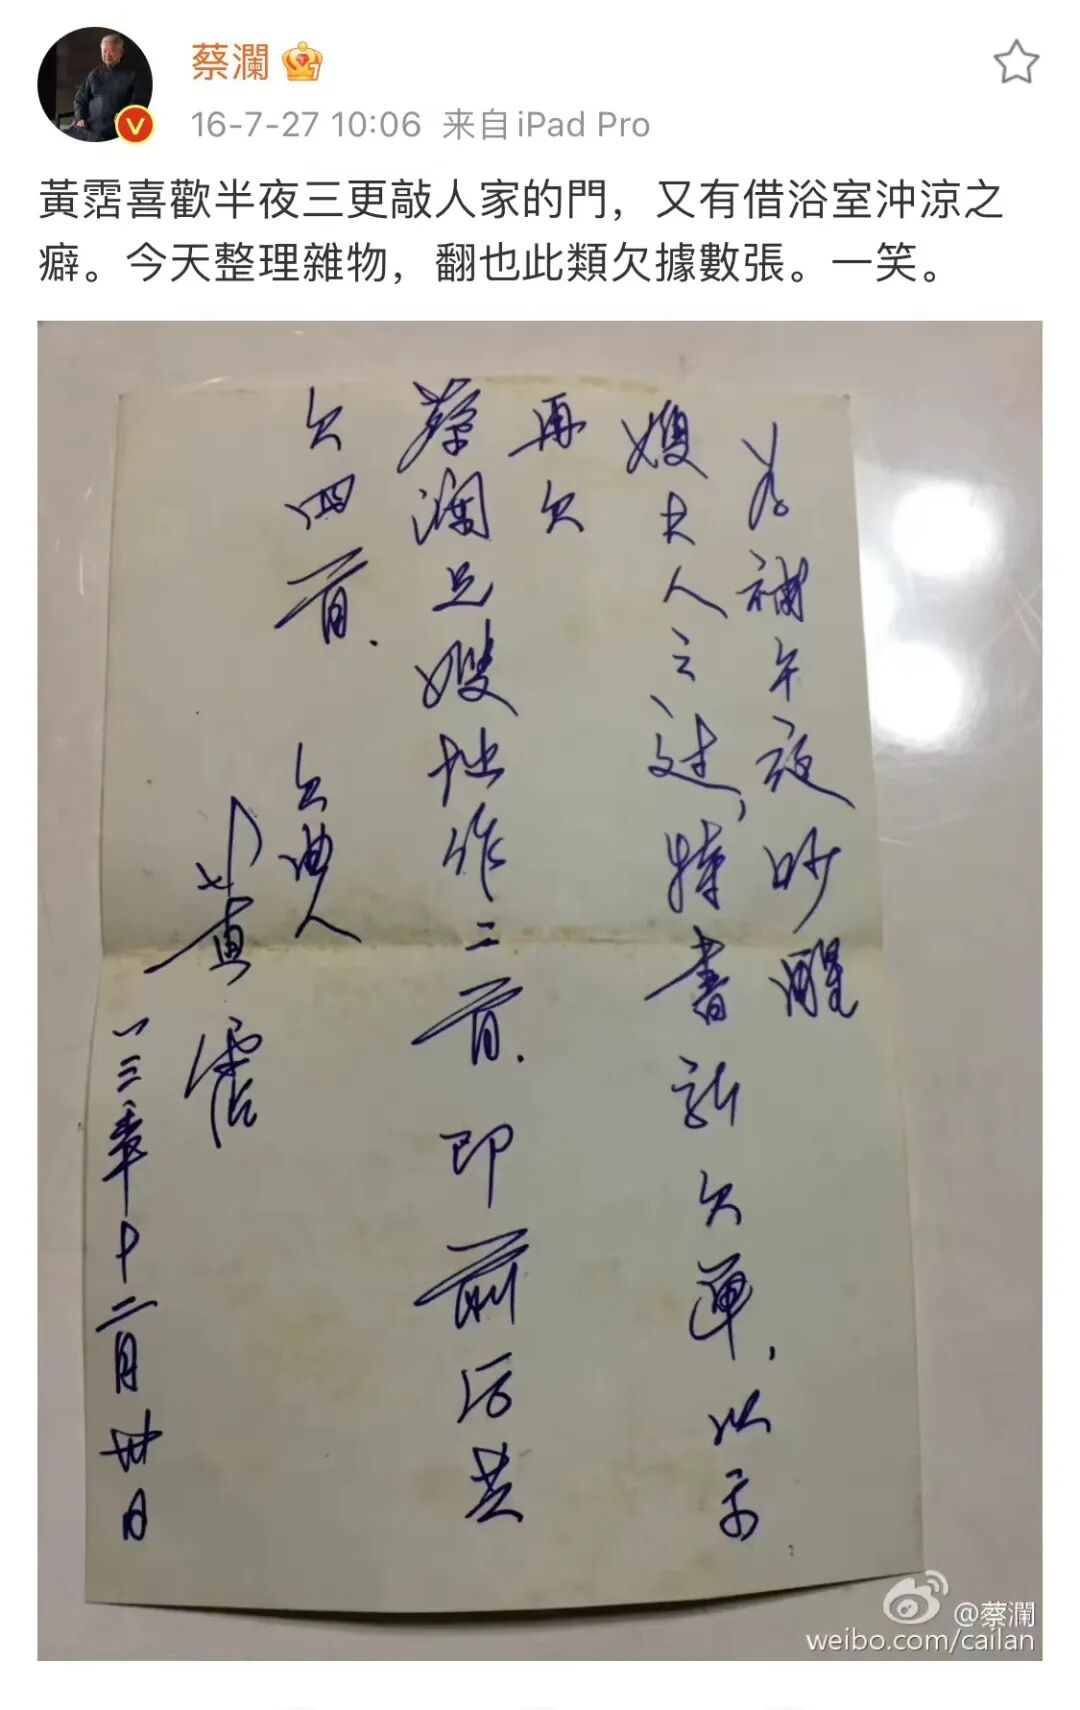 蔡瀾
16-7-27 10:06 来自 iPad Pro
黃霑喜歡半夜三更敲人家的門，又有借浴室沖涼之
癖。今天整理雜物，翻也此類欠據數張。一笑。
為補午夜吵醒
嫂夫人之过，特書新欠單，以示
再欠
蔡瀾兄嫂拙作二首．即前后共
欠四首．
欠曲人
黃霑
一三年十二月卅日
@蔡瀾
weibo.com/cailan